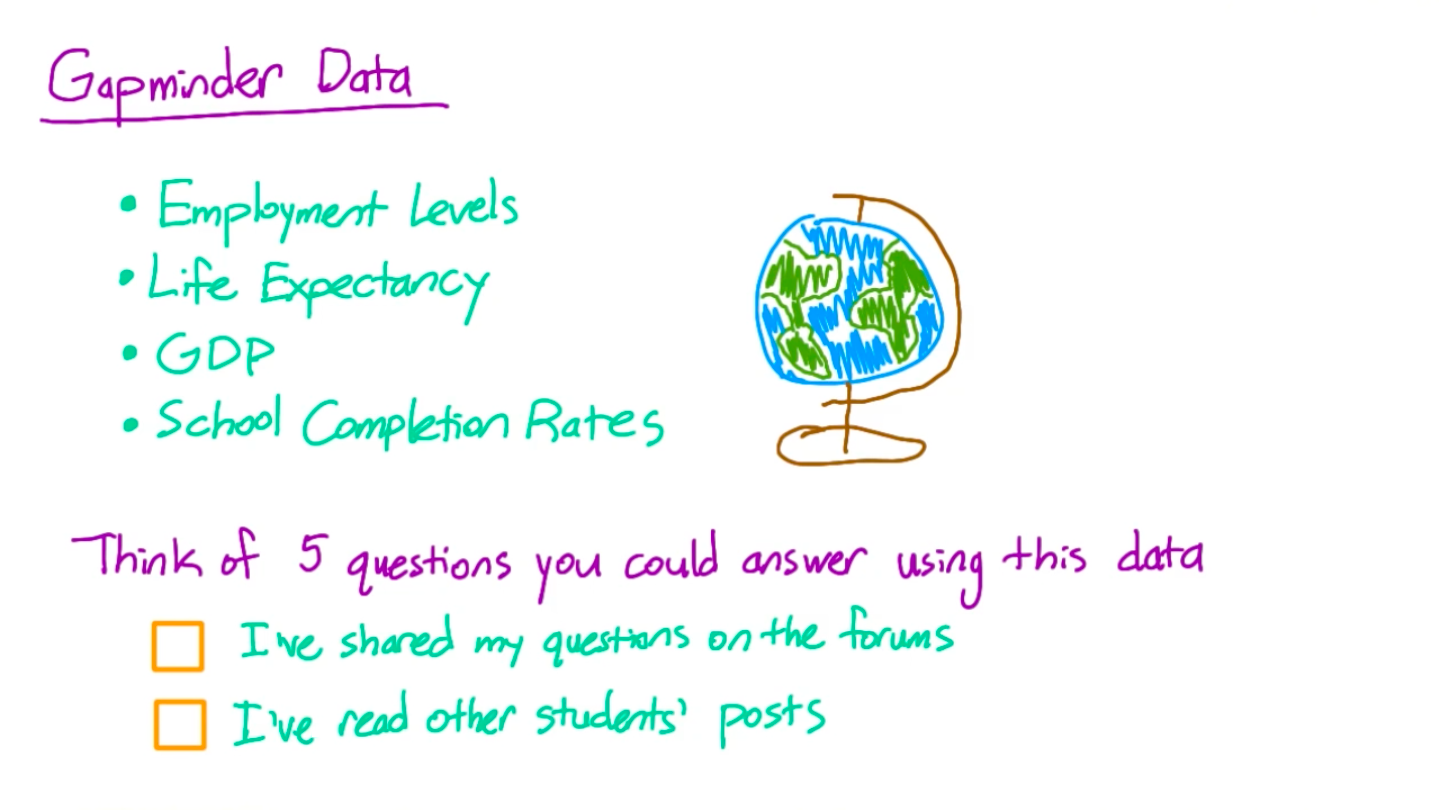 Gapminder Data
• Employment Levels
• Life Expectancy
• GDP
• School Completion Rates
Think of 5 questions you could answer using this data
I've shared my questions on the forums
I've read other students' posts